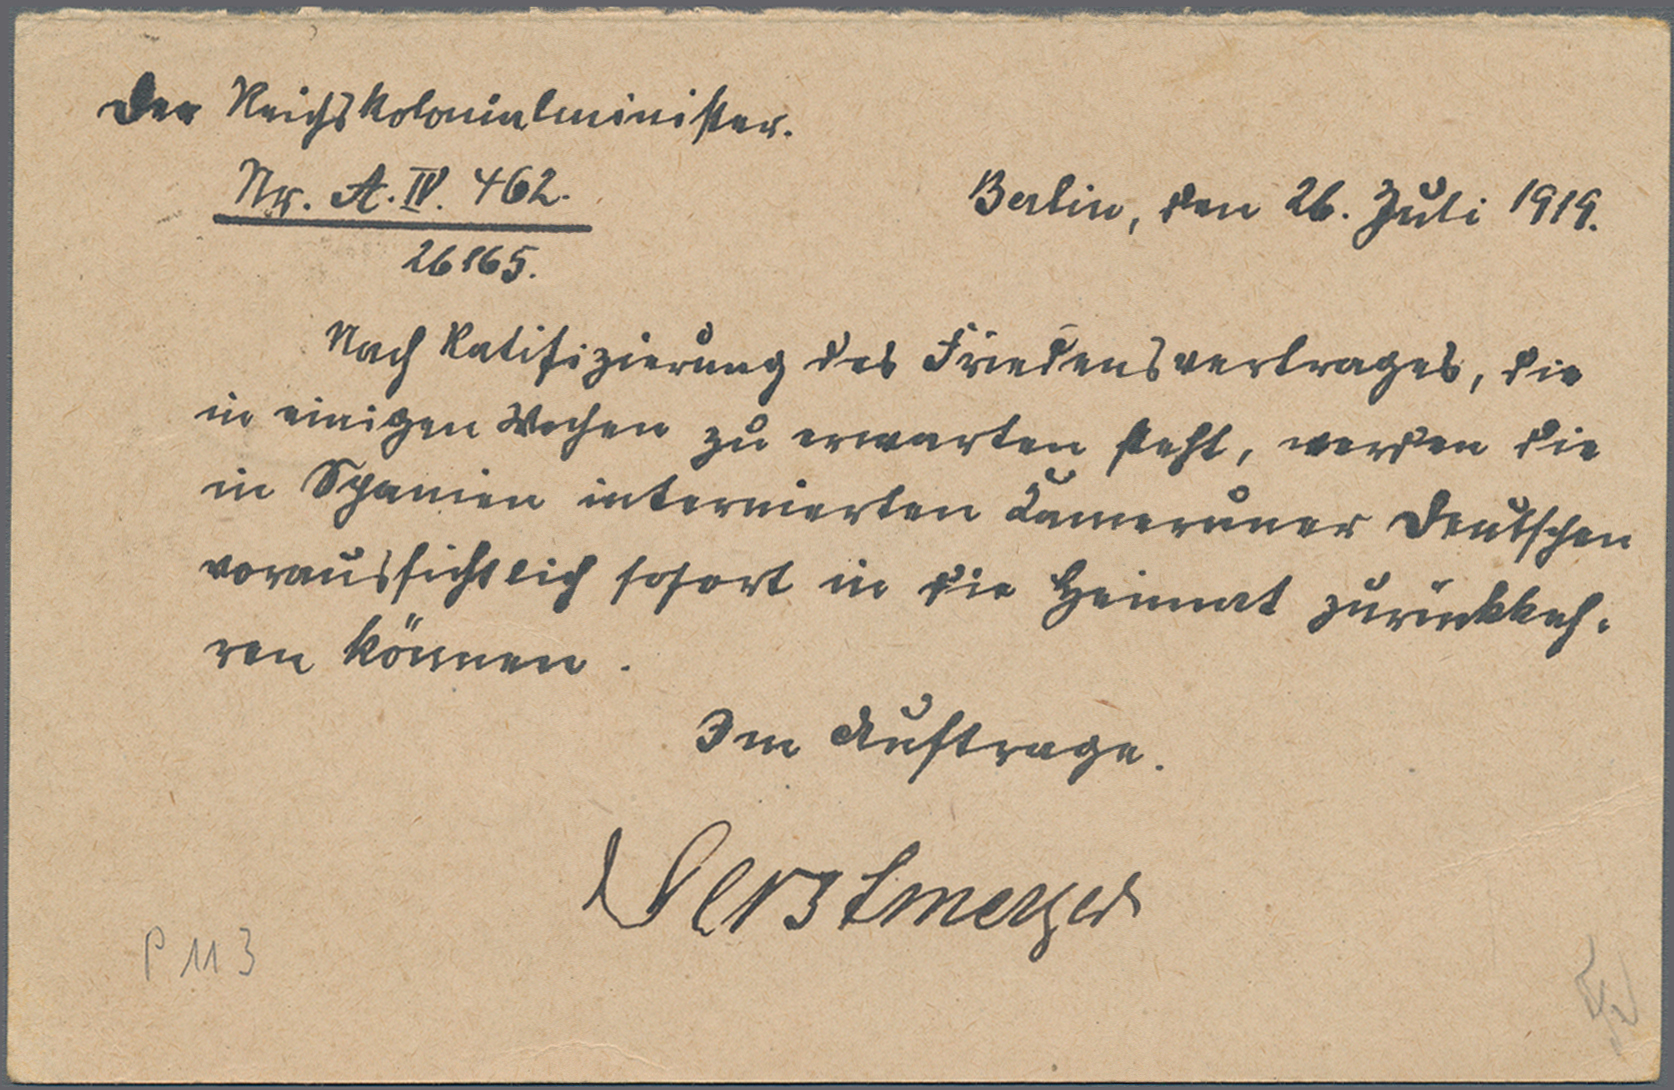 Der Reichskolonialminister.
Nr. A. IV. 462.
Berlin, den 26. Juli 1919.
26165.
Nach Ratifizierung des Friedensvertrages, die
in einigen Wochen zu erwarten steht, werden die
in Spanien internierten Kameruner Deutschen
voraussichtlich sofort in die Heimat zurückkeh-
ren können.
Im Auftrage.
P 113